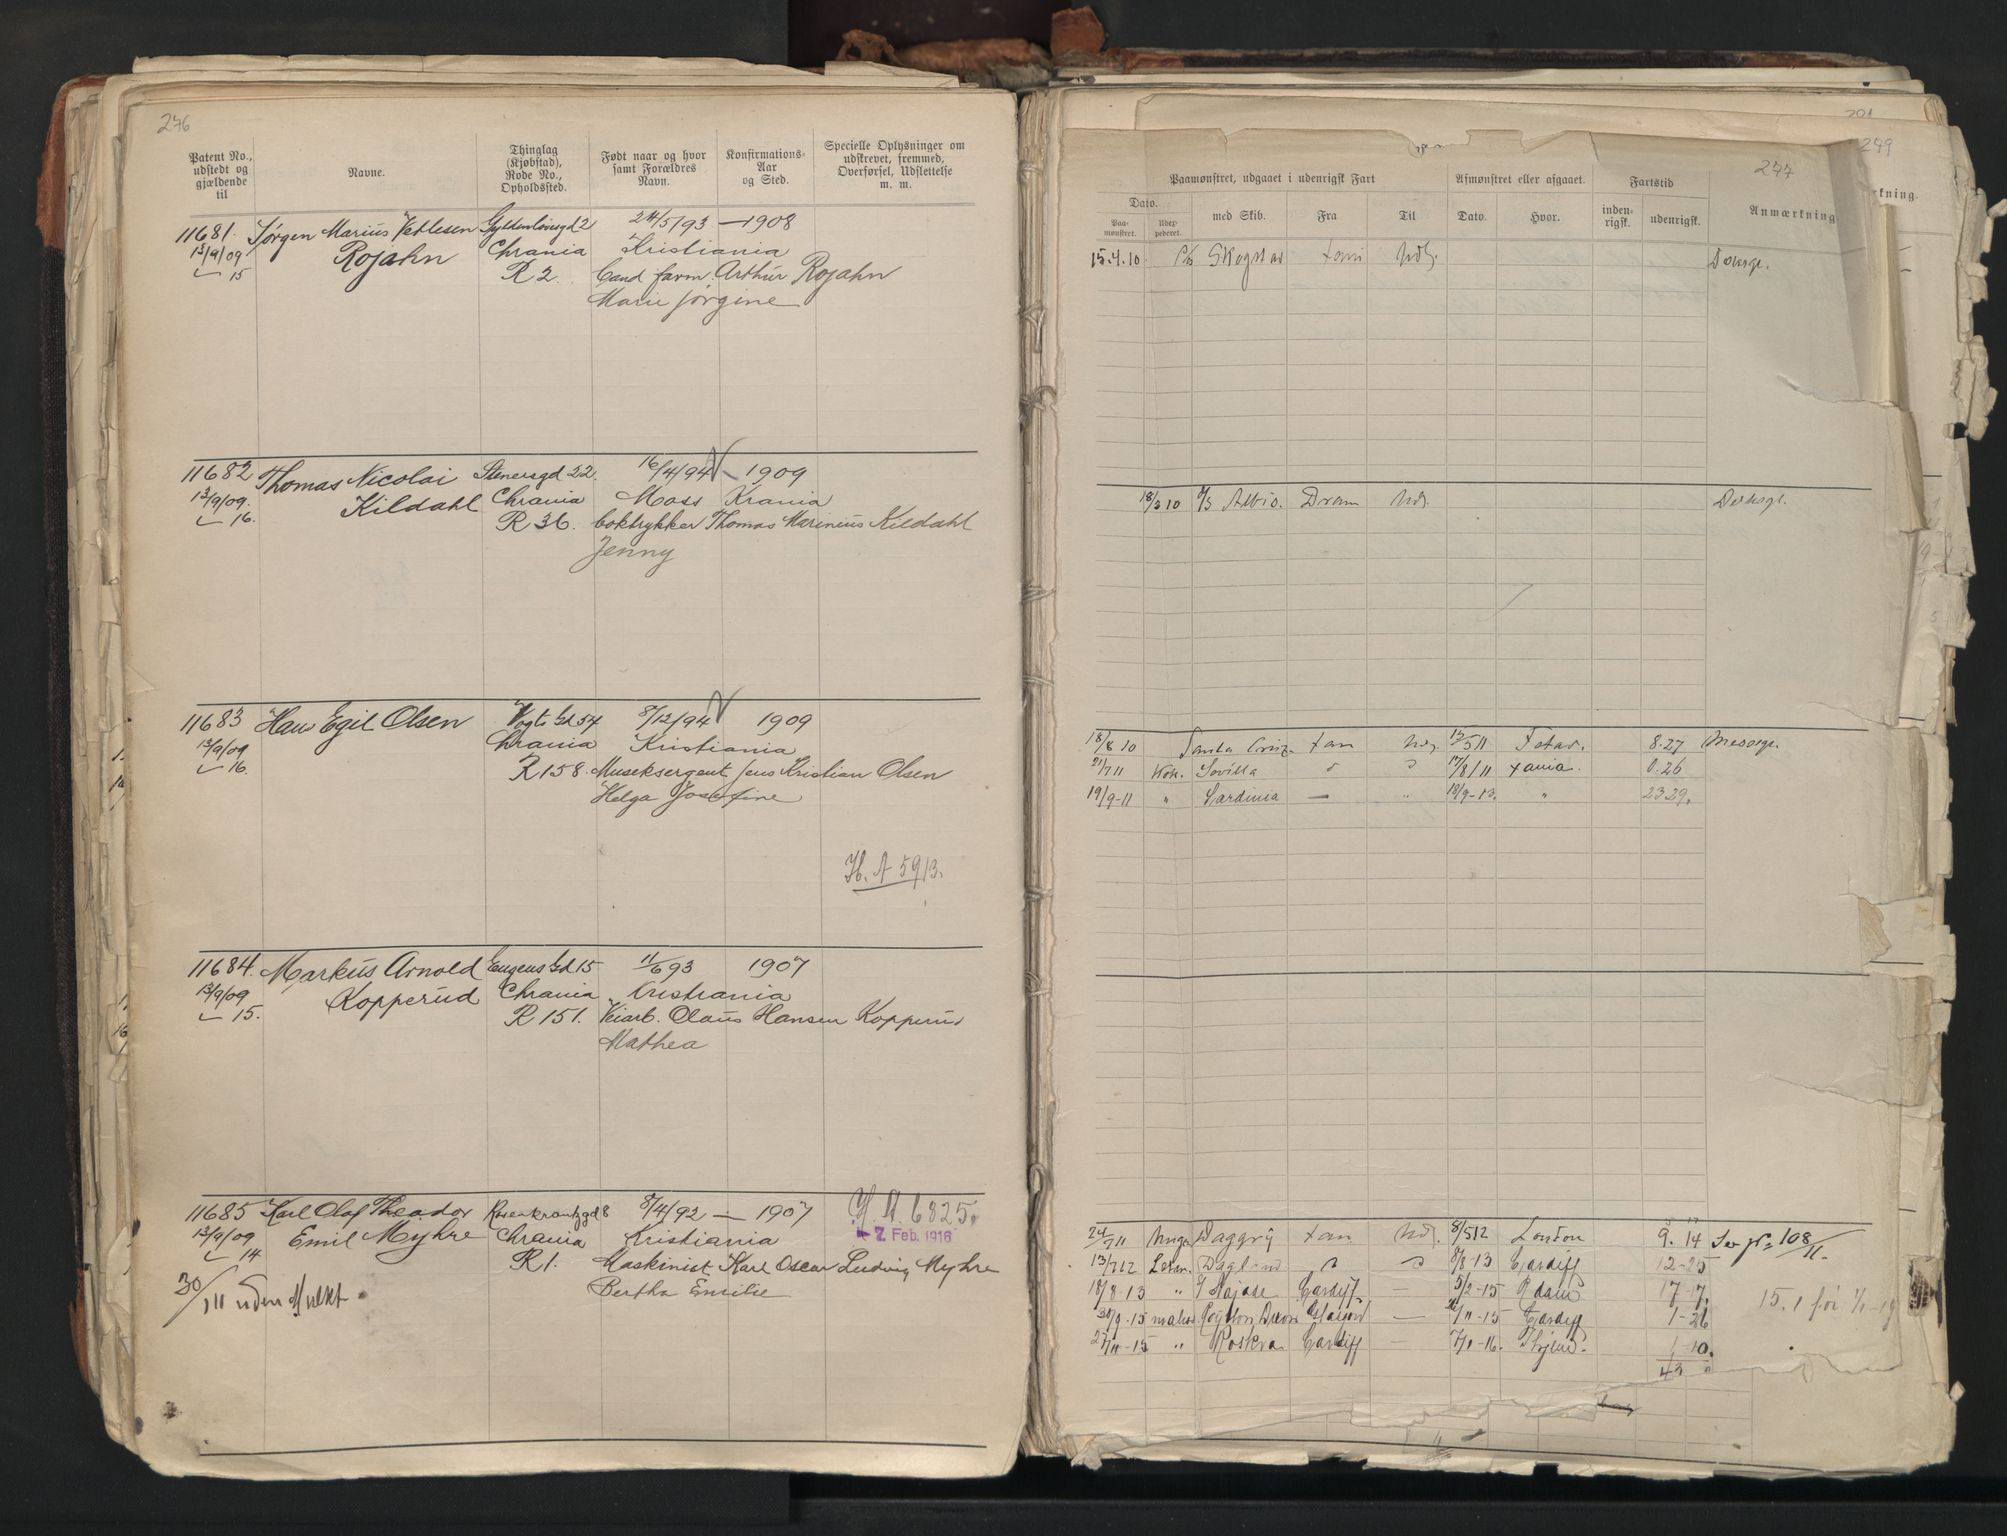 276
Patent No., udstedt og gjældende til
Navne.
Thinglag (Kjøbstad), Rode No., Opholdssted.
Født naar og hvor samt Forældres Navn.
Konfirmations-Aar og Sted.
Specielle Oplysninger om udskrevet, fremmed, Overførsel, Udslettelse m. m.
11681. Jørgen Marius Vetlesen Gyldenløvesgd 2 24/5/93 — 1908
13/9/09 Rojahn Chrania Kristiania
15 R 2. Cand farm Arthur Rojahn
Marie Jørgine
11682 Thomas Nicolai Stenersgd 22 16/4/94 — 1909
13/9/09. Kildahl Chrania Moss Krania
16. R 36. boktrykker Thomas Marinius Kildahl
Jenny
11683 Hans Egil Olsen Vogts Gd 54 8/12/94 1909
13/9/09 Chrania Kristiania
16. R 158. Museksergeant Jens Kristian Olsen
Helga Josefine
H. A 5913.
11684. Markus Arnold Eugens Gd 15 11/6 93 1907
13/9/09 Kopperud Chrania Kristiania
15. R 151. Veiarb. Olaus Hansen Kopperud
Mathea
11685 Karl Olaf Theodor Rosenkrantzgd 8 8/4/92 — 1907 H. A. 6825.
13/9/09 Emil Myhre Chrania Kristiania - 7 Feb. 1916
14 R 1. Maskinist Karl Oscar Ludvig Myhre
Bertha Emilie
30/ 111 uden Mulkt
279
277
Paamønstret, udgaaet i udenrigsk Fart
Afmønstret eller afgaaet.
Fartstid
Anmærkning
Dato.
Paamønstret.
Udexpederet.
med Skib.
Fra
Til
Dato.
Hvor.
indenrigsk.
udenrigsk.
15.4.10 Skogstad Xani Udl.
18/3 10 Albis. Dram Udl. Dæksgt.
18/8 10 Santa Cruz Xan Udl. 15/5 11 8.27 Messegt.
21/7 11 Kok. Sevilla 17/8/11 Xania. 0.26
19/9-11 " Sardinia — " 18/9-13. " 23 29.
24/ 11 Daggry Xan Udl. 8/5 12 London 9. 14 Se pr. 108/11.
13/7 12 8/8-13 Cardiff 12-25
18/8.13 " Cardiff — 5/2-15 Rdam 17-17.
15 — /11-15 Cardiff 1-26
15.1 for
27/11-15 " Roskva Cardiff — 7/1-16. 1-10.
43